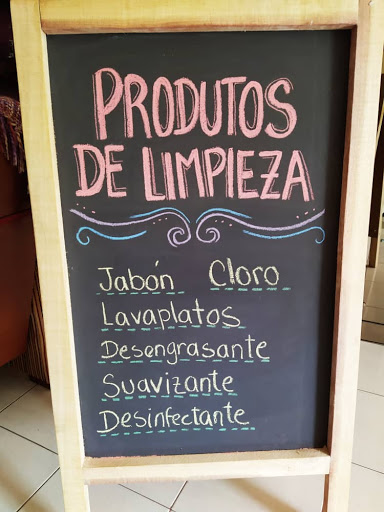 PRODUTOS
DE LIMPIEZA
Jabón Cloro
Lavaplatos
Desengrasante
Suavizante
Desinfectante